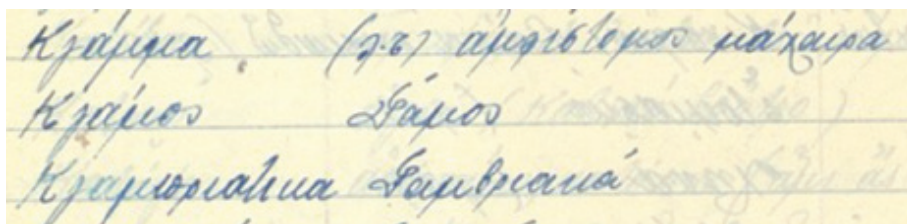 Κjάμμα ἀμφίστομος μάχαιρα
Κjάμος Γάμος
Κjαμπριάτικα Γαμβριακά